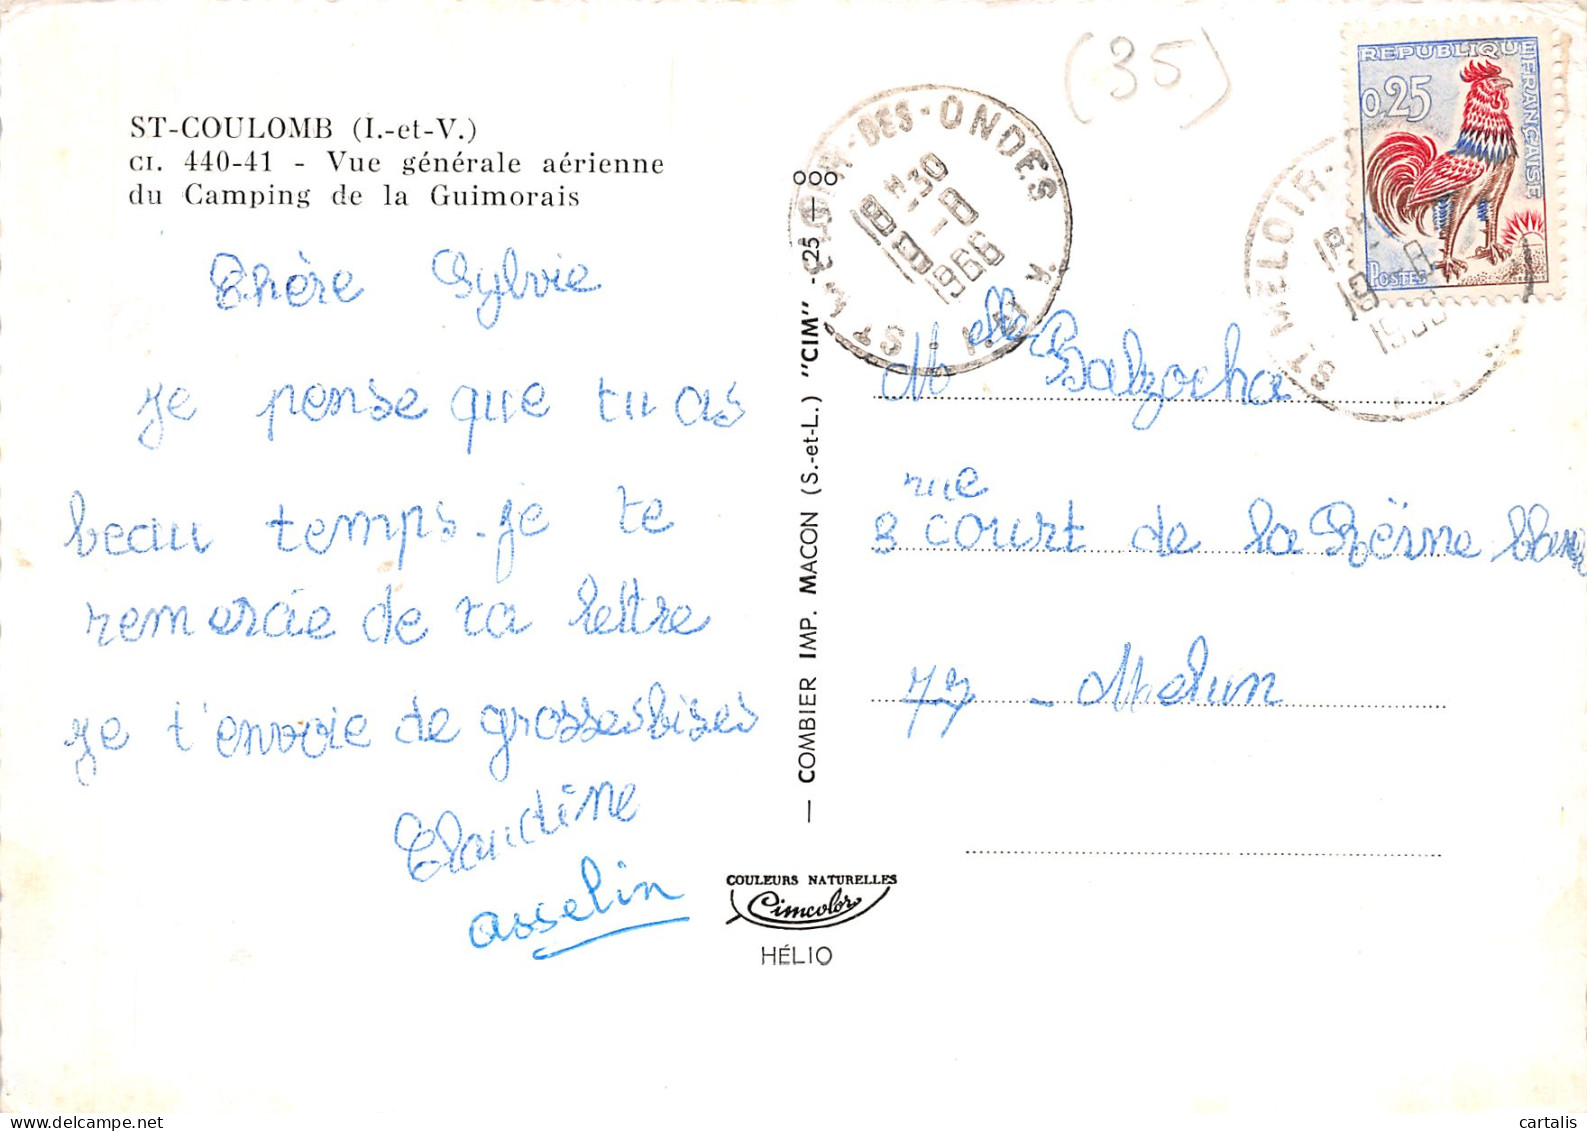 ST-COULOMB (I.-et-V.)
CI. 440-41 - Vue générale aérienne
du Camping de la Guimorais
Chère Sylvie
je pense que tu as
beau temps. je te
remercie de ta lettre
je t'envoie de grosses bises
Claudine
asselin
— COMBIER IMP. MACON (S.-et-L.) "CIM" - 25 —
COULEURS NATURELLES
Cimcolor
HÉLIO
(35)
ST MELOIR-DES-ONDES
I. ET V.
1966
REPUBLIQUE FRANÇAISE
0,25
POSTES
ST MELOIR-
Melle Balzocha
rue
3 court de la Reine
77 - Melun
cartalis